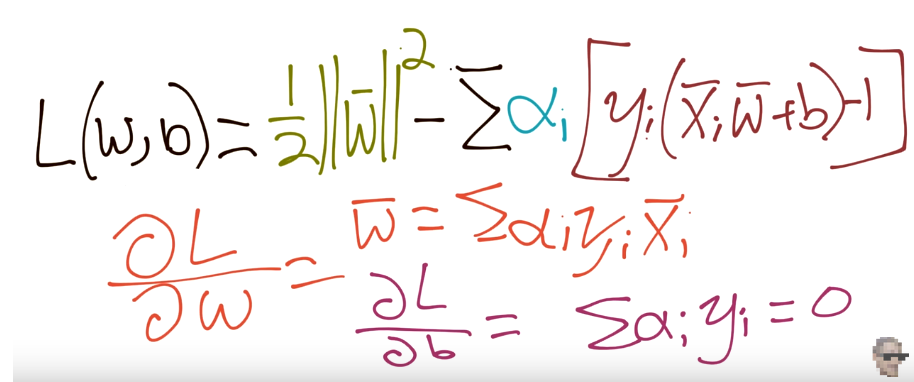 L(w,b) = 1/2 ||w̄||² - Σ αᵢ [yᵢ(x̄ᵢ w̄ + b) - 1]
∂L/∂w = w̄ = Σ αᵢ yᵢ x̄ᵢ
∂L/∂b = Σ αᵢ yᵢ = 0